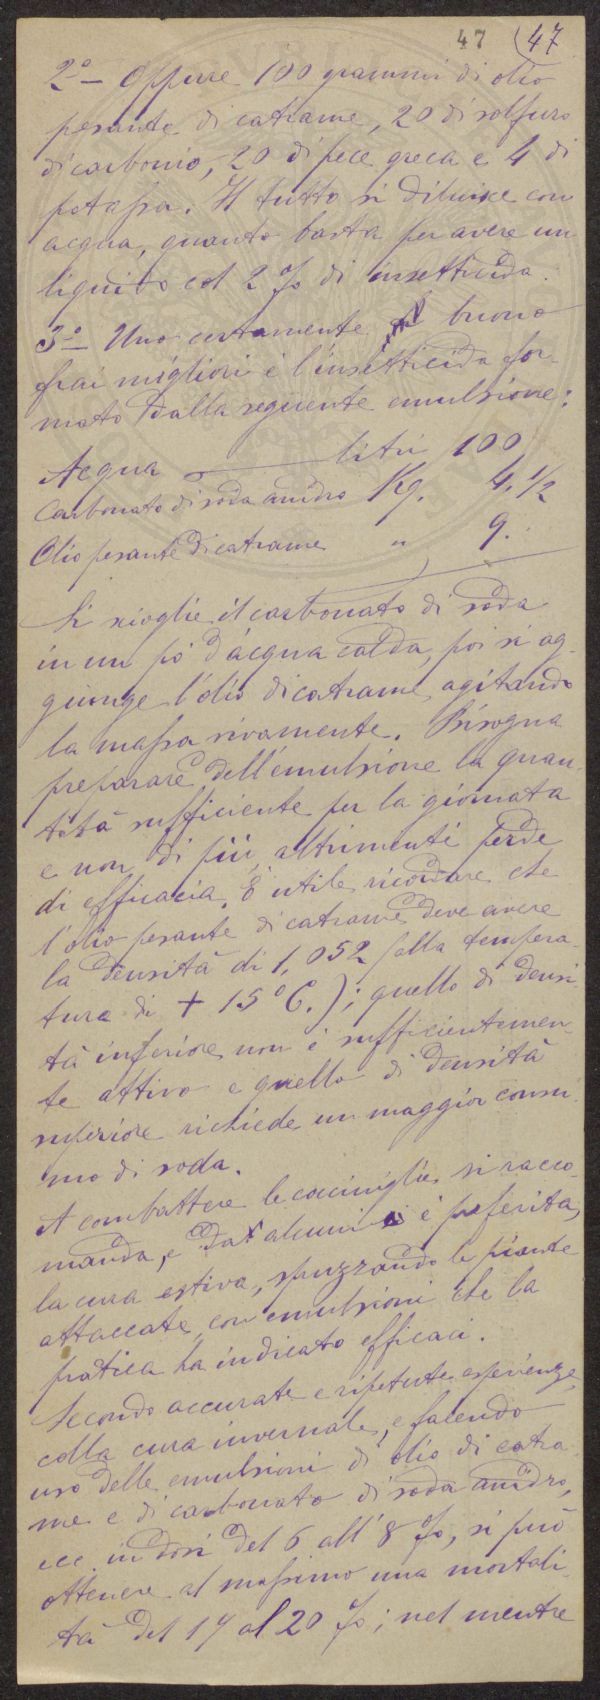 47 (47
2º — Oppure 100 grammi di olio
pesante di catrame, 20 di solfuro
di carbonio, 20 di pece greca e 4 di
potassa. Il tutto si diluisce con
acqua, quanto basta per avere un
liquido col 2 % di insetticida.
3º — Uno certamente buono
frai migliori è l'insetticida for-
mato dalla seguente emulsione:
Acqua — litri 100
Carbonato di soda anidro Kg. 4. 1/2
Olio pesante di catrame " 9.
Si scioglie il carbonato di soda
in un po' d'acqua calda, poi si ag-
giunge l'olio di catrame, agitando
la massa vivamente. Bisogna
preparare dell'emulsione la quan-
tità sufficiente per la giornata
e non di più, altrimenti perde
di efficacia. È utile ricordare che
l'olio pesante di catrame deve avere
la densità di 1,052 (alla tempera-
tura di + 15º C.); quello di densi-
tà inferiore non è sufficientemen-
te attivo e quello di densità
superiore richiede un maggior consu-
mo di soda.
A combattere le cocciniglie si racco-
manda, e da alcuni è preferita,
la cura estiva, spruzzando le piante
attaccate con emulsioni che la
pratica ha indicato efficaci.
Secondo accurate e ripetute esperienze,
colla cura invernale, e facendo
uso delle emulsioni di olio di catra-
me e di carbonato di soda anidro,
ecc. in dosi del 6 all' 8 %, si può
ottenere al massimo una mortali-
tà del 17 al 20 %; nel mentre